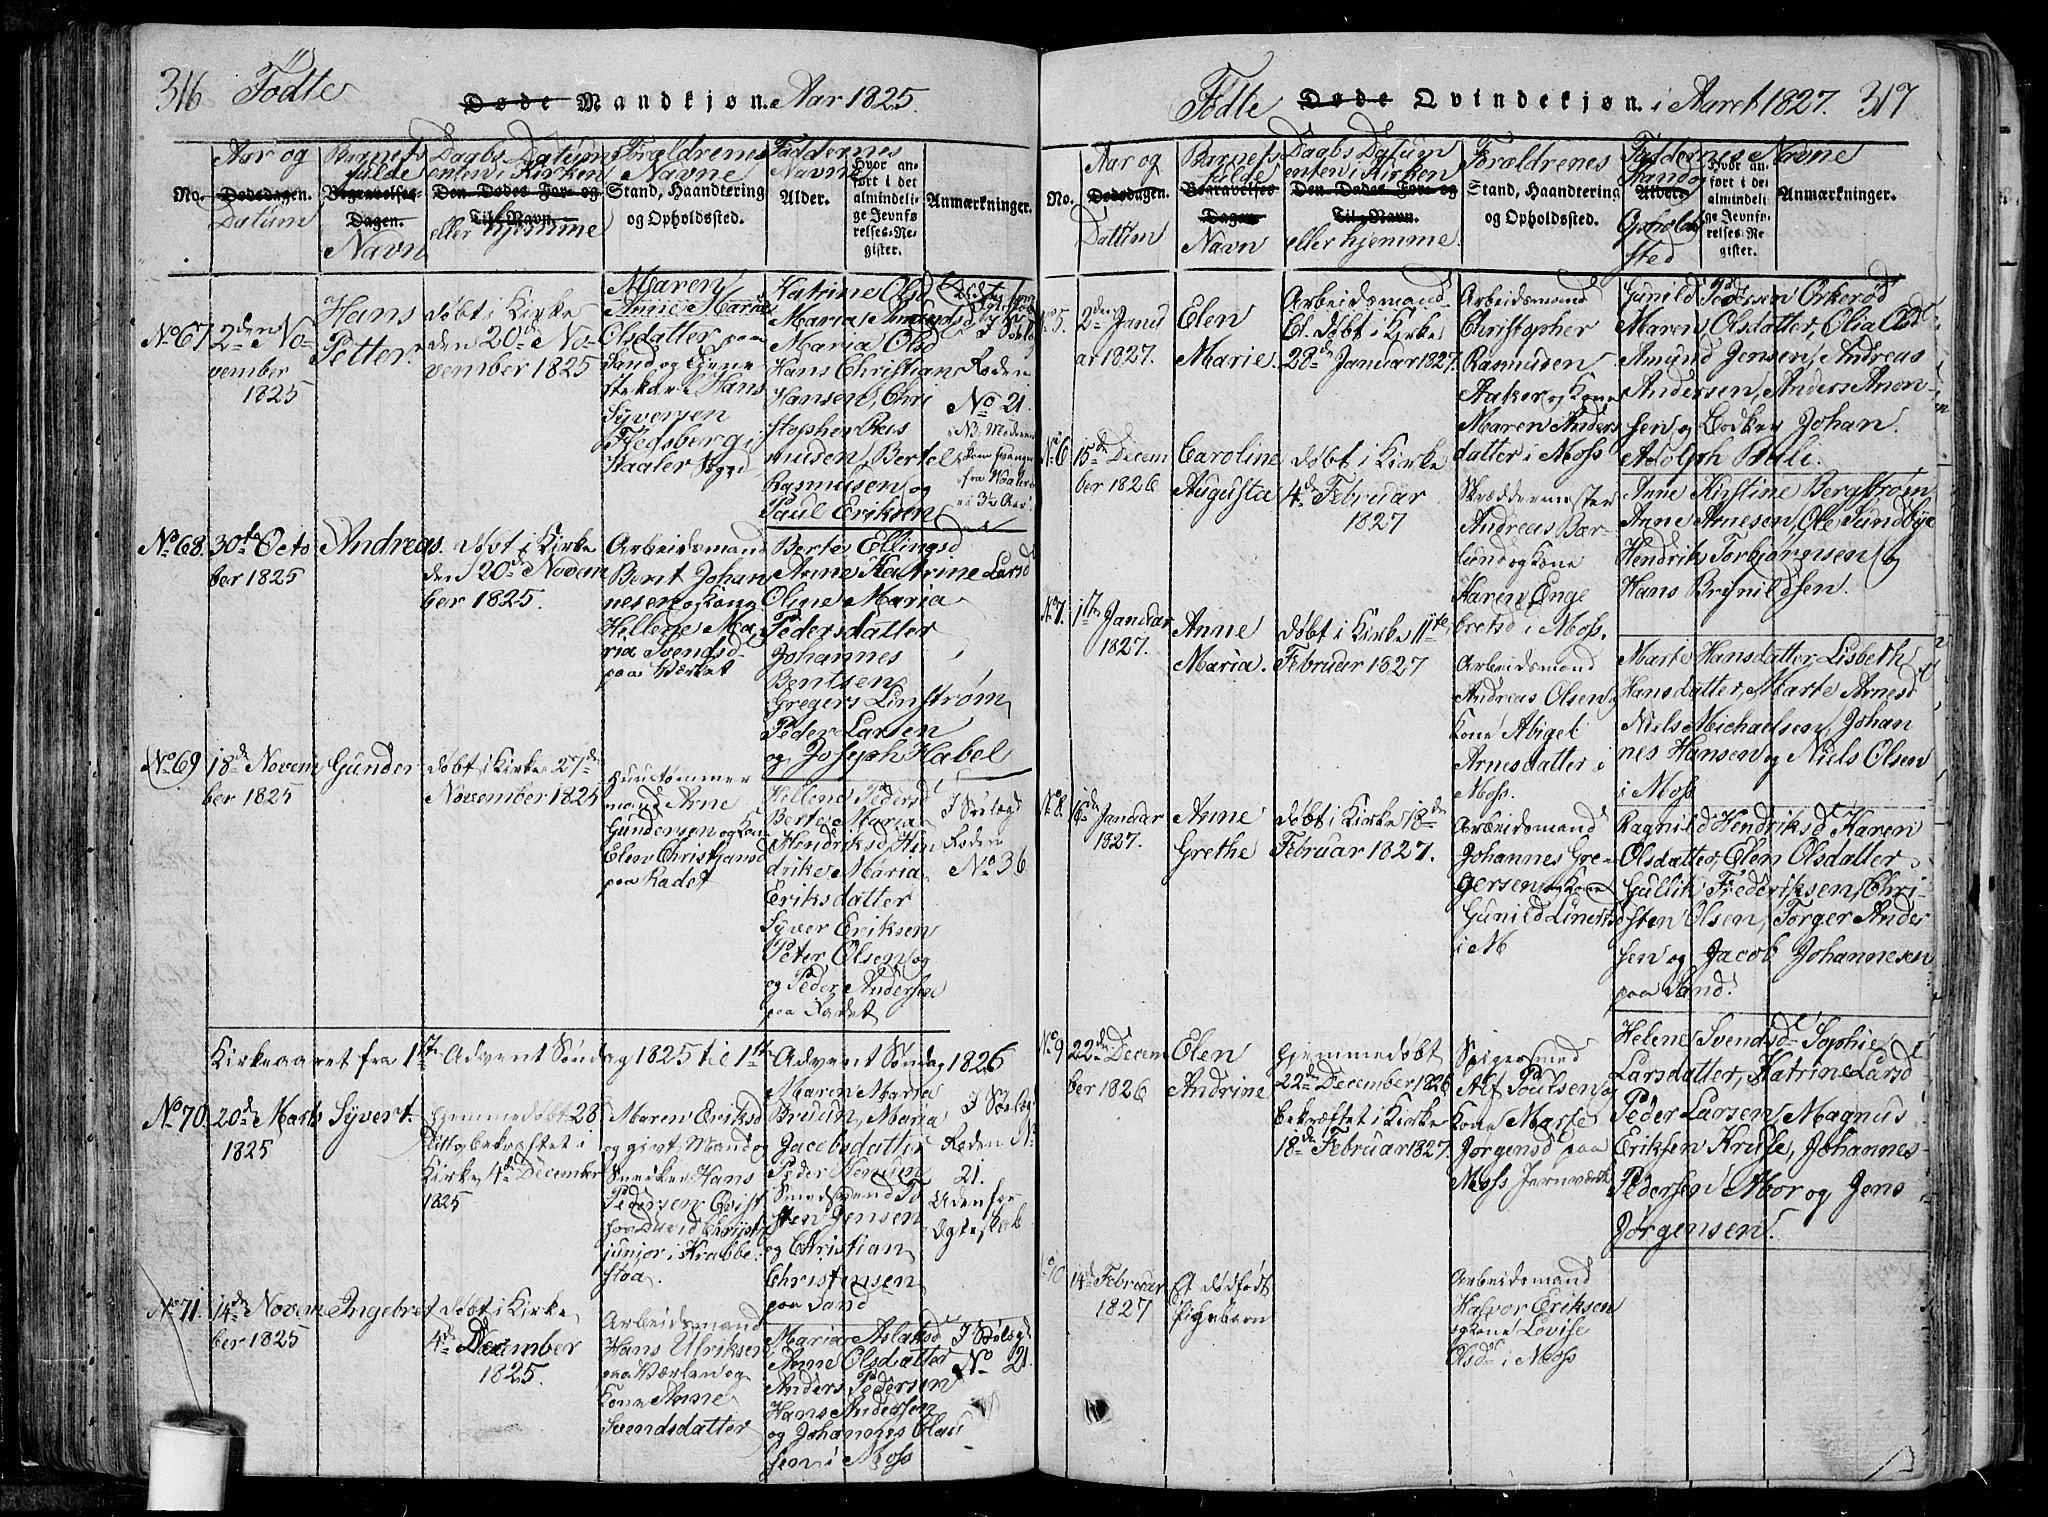 316 Födte Døde Mandkjøn. Aar 1825.
No.
Aar og
Dødsdagen.
Datum
Barnets
fulde
Begravelses-
Dagen.
Navn
Daabs Datum
enten i Kirken
Den Dødes For- og
Til-Navn.
eller hjemme
Forældrenes
Navne
Stand, Haandtering
og Opholdssted.
Faddernes
Navne
Alder.
Hvor an-
ført i det
almindeli-
ge Jevnfø-
relses-Re-
gister.
Anmærkninger.
No 67
2den No
vember
1825
Hans
Petter.
døbt i Kirke
den 20de No-
vember 1825
Maren
Anne Marie
Olsdatter paa
Sand og
Hans
Syversen
Flesberg i
Vaaler Sogn
Katrine Olsd
Maria Amundsd
Maria Olsd
Hans Christian
Hansen, Chri
stopher Ras
musen, Bertel
Rasmusen og
Paul Eriksen
Roden
No 21.
NB. Moderen
fra Waaler
i 3½ Aar
No 68.
30te Octo
ber 1825
Andreas.
døbt i Kirke
den 20de Novem
ber 1825.
Arbeidsmand
Bent Johan
nesen og Kone
Hellene Ma
ria Svendsd
paa Værket
Berte Ellingsd
Anne Katrine Larsd
Oline Maria
Pedersdatter
Johannes
Bentsen
Gregers Linstrøm
Peder Larsen
og Joseph Habel
No 69
18de Novem
ber 1825
Gunder
døbt i Kirke 27de
November 1825
Huustømmer
mand Arne
Gundersen og Kone
Elen Christiansd
paa Radet
Hellene Pedersd
Berte Maria
Hendriksd, Hen
drike Maria
Eriksdatter
Syver Eriksen
Peter Olsen og
og Peder Andersen
paa Radet
Roden
No 36
Kirkeaaret fra 1ste Advent Søndag 1825 til 1ste Advent Søndag 1826
No 70.
20de Marts
1825
Syvert.
hjemmedøbt 28
bekræftet i
Kirke 4de December
1825
Maren Eriksd
og givt Mand
Sneeker Hans
Pedersen
hos David Chrystie
junior i Krabbe-
stoa.
Maren Maria
Bruun, Maria
Jacobsdatter
Peder
Smedsvend To
sten Jensen
og Christian
Christensen
paa Sand
Roden No
21.
Udenfor
Ægteskab
No 71.
14de Novem
ber 1825
Ingebret
døbt i Kirke
4de December
1825.
Arbeidsmand
Hans Ulriksen
paa Værlen og
Kone Anne
Svendsdatter
Maria Aslaksd
Anne Olsdatter
Anders Pedersen
Hans Andersen
og Johannes Olau
sen i Moss
No 21
Fødte Døde Qvindekjøn. i Aaret 1827. 317
No.
Aar og
Dødsdagen.
Datum
Barnets
fulde
Begravelses
Dagen
Navn
Daabs Datum
enten i Kirken
Den Dødes For- og
Til-Navn.
eller hjemme.
Forældrenes
Stand, Haandtering
og Opholdssted.
Faddernes Navne
Stand og
Alder.
Opholds
sted
Hvor an-
ført i det
almindeli-
ge Jevnfø-
relses-Re-
gister.
Anmærkninger.
No 5.
2den Janu
ar 1827.
Elen
Marie.
Arbeidsmand.
El. døbt i Kirke
28de Januar 1827.
Arbeidsmand
Christopher
Rasmusen
Aaker og Kone
Maren Anders
datter i Moss
Gunild Orkerød
Maren Olsdatter, Olia Olsd
Amund Jensen, Andreas
Andersen, Anders Amon-
sen og Johan
Adolph Prili.
No 6
15de Decem
ber 1826
Caroline
Augusta
døbt i Kirke
4de Februar
1827
Skræddermester
Andreas Bær-
lund og Kone
Karen Enge
bretsd i Moss.
Anne Kirstine Bergstrøm,
Anne Arnesen, Ole Sundbye
Hendrik Torbjørnsen, og
Hans Brynildsen.
No 7.
1te Januar
1827.
Anne
Maria.
døbt i Kirke 11te
Februar 1827
Arbeidsmand
Andreas Olsen og
Kone Abigel
Arnesdatter i
Moss.
Marte Hansdatter, Lisbeth
Hansdatter, Marte Arnesd
Niels Michaelsen, Johan
nes Hansen og Niels Olsen
i Moss
No 8.
16de Januar
1827.
Anne
Grethe
døbt i Kirke 18de
Februar 1827.
Arbeidsmand
Johannes Gre-
gersen og Kone
Gunild Linertsd
i M
Ragnild Hendriksd Karen
Olsdatter, Elen Olsdatter
Gullik Frederiksen, Chri-
sten Olsen, Torger Ander
sen og Jacob Johannesen
paa Sand.
No 9
22de Decem
ber 1826
Olen
Andrine
hjemmedøbt
22de December 1826
bekræftet i Kirke
18de Februar 1827
Spigersmed
Alf Poulsen og
Kone Marte
Jørgensd paa
Moss Jernværk
Helene Svendsd Sophie
Larsdatter, Katrine Larsd
Peder Larsen, Magnus
Eriksen Kruse, Johannes
Pedersen Mor og Jens
Jørgensen.
No 10
14de Februar
1827
Et dødfødt
Pigebarn
Arbeidsmand
Halvor Eriksen
og Kone Lovise
Olsd i Moss